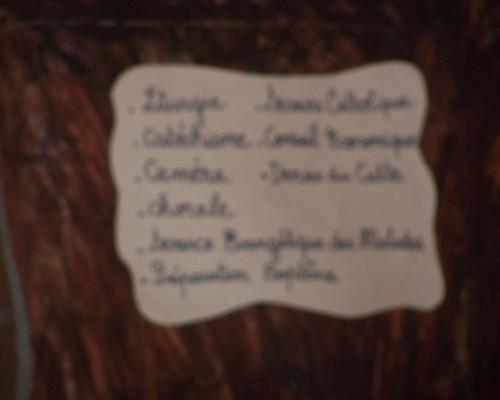 . Liturgie . Secours Catholique
. Catéchisme . Conseil Economique
. Caméra . Denier du Culte
. chorale
. Service Evangélique des Malades
. Préparation Baptême